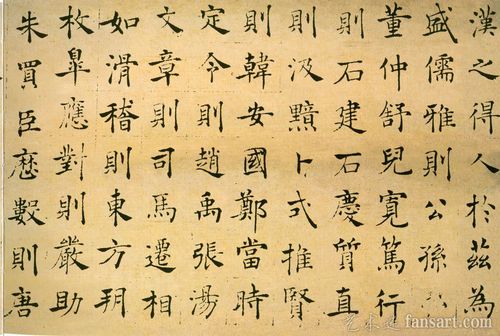 漢之得人於茲為
盛儒雅則公孫弘
董仲舒兒寬篤行
則石建石慶質直
則汲黯卜式推賢
則韓安國鄭當時
定令則趙禹張湯
文章則司馬遷相
如滑稽則東方朔
枚臯應對則嚴助
朱買臣歷數則唐
fansart.com